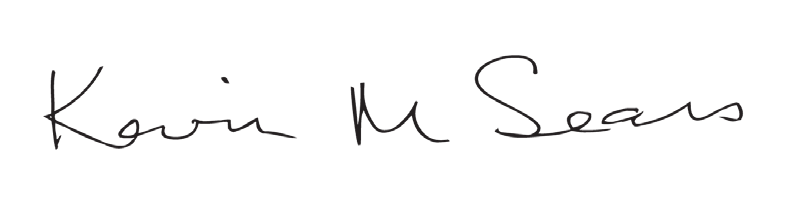 Kevin M Sears